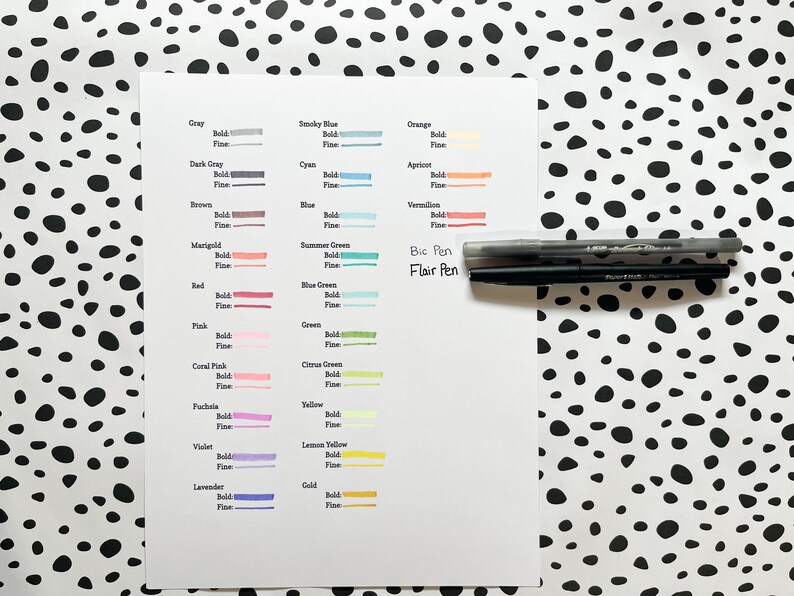 Gray
Bold:
Fine:
Dark Gray
Bold:
Fine:
Brown
Bold:
Fine:
Marigold
Bold:
Fine:
Red
Bold:
Fine:
Pink
Bold:
Fine:
Coral Pink
Bold:
Fine:
Fuchsia
Bold:
Fine:
Violet
Bold:
Fine:
Lavender
Bold:
Fine:
Smoky Blue
Bold:
Fine:
Cyan
Bold:
Fine:
Blue
Bold:
Fine:
Summer Green
Bold:
Fine:
Blue Green
Bold:
Fine:
Green
Bold:
Fine:
Citrus Green
Bold:
Fine:
Yellow
Bold:
Fine:
Lemon Yellow
Bold:
Fine:
Gold
Bold:
Fine:
Orange
Bold:
Fine:
Apricot
Bold:
Fine:
Vermilion
Bold:
Fine:
Bic Pen
Flair Pen